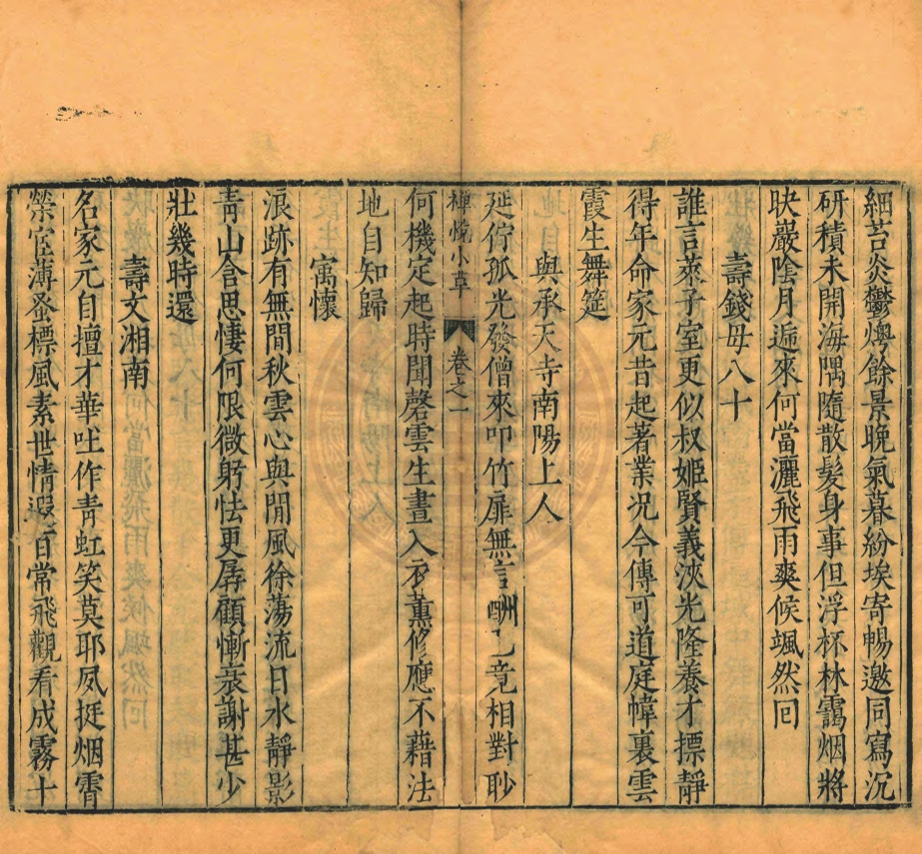 細苔炎鬱燠餘景晚氣暮紛埃寄暢邀同寫沉
研積未開海隅隨散髮身事但浮杯林靄烟將
昳巖陰月遞來何當灑飛雨爽候颯然回
壽錢母八十
誰言萊子室更似叔姬賢義浹光隆養才摽靜
得年命家元昔起著業况今傳可道庭幃裏雲
霞生舞筵
與承天寺南陽上人
延佇孤光發僧來叩竹扉無言酬已竟相對聊
禪悅小草 卷之一
何機定起時聞磬雲生晝入衣薰修應不藉法
地自知歸
寓懷
浪跡有無間秋雲心與閒風徐蕩流日水靜影
青山含思悽何限微躬怯更孱顧慚衰謝甚少
壯幾時還
壽文湘南
名家元自擅才華吐作青虹笑莫耶夙挺烟霄
榮宦薄蚤標風素世情遐名常飛觀看成霧十